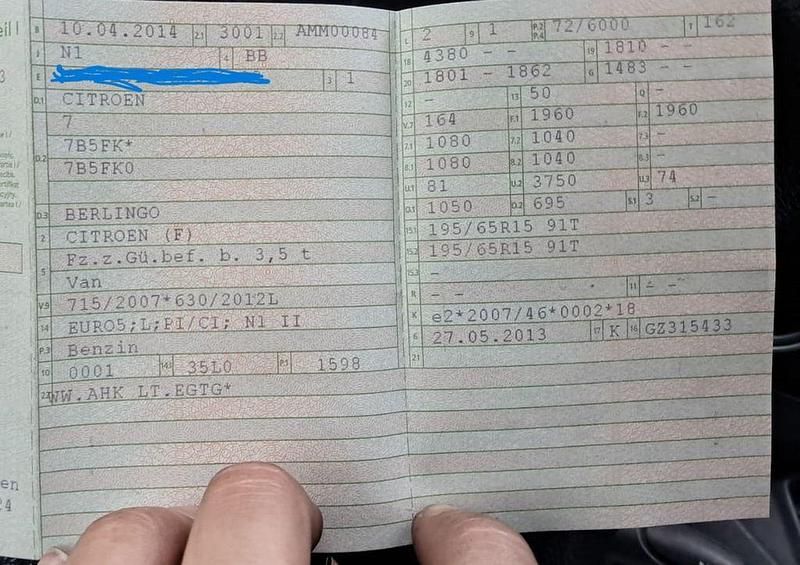 B 10.04.2014 2.1 3001 2.2 AMM00084
J N1 4 BB
E 3 1
D.1 CITROEN
7
D.2 7B5FK*
7B5FK0
D.3 BERLINGO
2 CITROEN (F)
5 Fz.z.Gü.bef. b. 3,5 t
Van
V.9 715/2007*630/2012L
14 EURO5;L;PI/CI; N1 II
P.3 Benzin
10 0001 14.1 35L0 P.1 1598
22 WW.AHK LT.EGTG*
L 2 9 1 P.2 P.4 72/6000 T 162
18 4380 - - 19 1810 - -
20 1801 - 1862 G 1483 - -
12 - 13 50 Q -
V.7 164 F.1 1960 F.2 1960
7.1 1080 7.2 1040 7.3 -
8.1 1080 8.2 1040 8.3 -
U.1 81 U.2 3750 U.3 74
O.1 1050 O.2 695 S.1 3 S.2 -
15.1 195/65R15 91T
15.2 195/65R15 91T
15.3 -
R - - 11 - -
K e2*2007/46*0002*18
6 27.05.2013 17 K 16 GZ315433
21